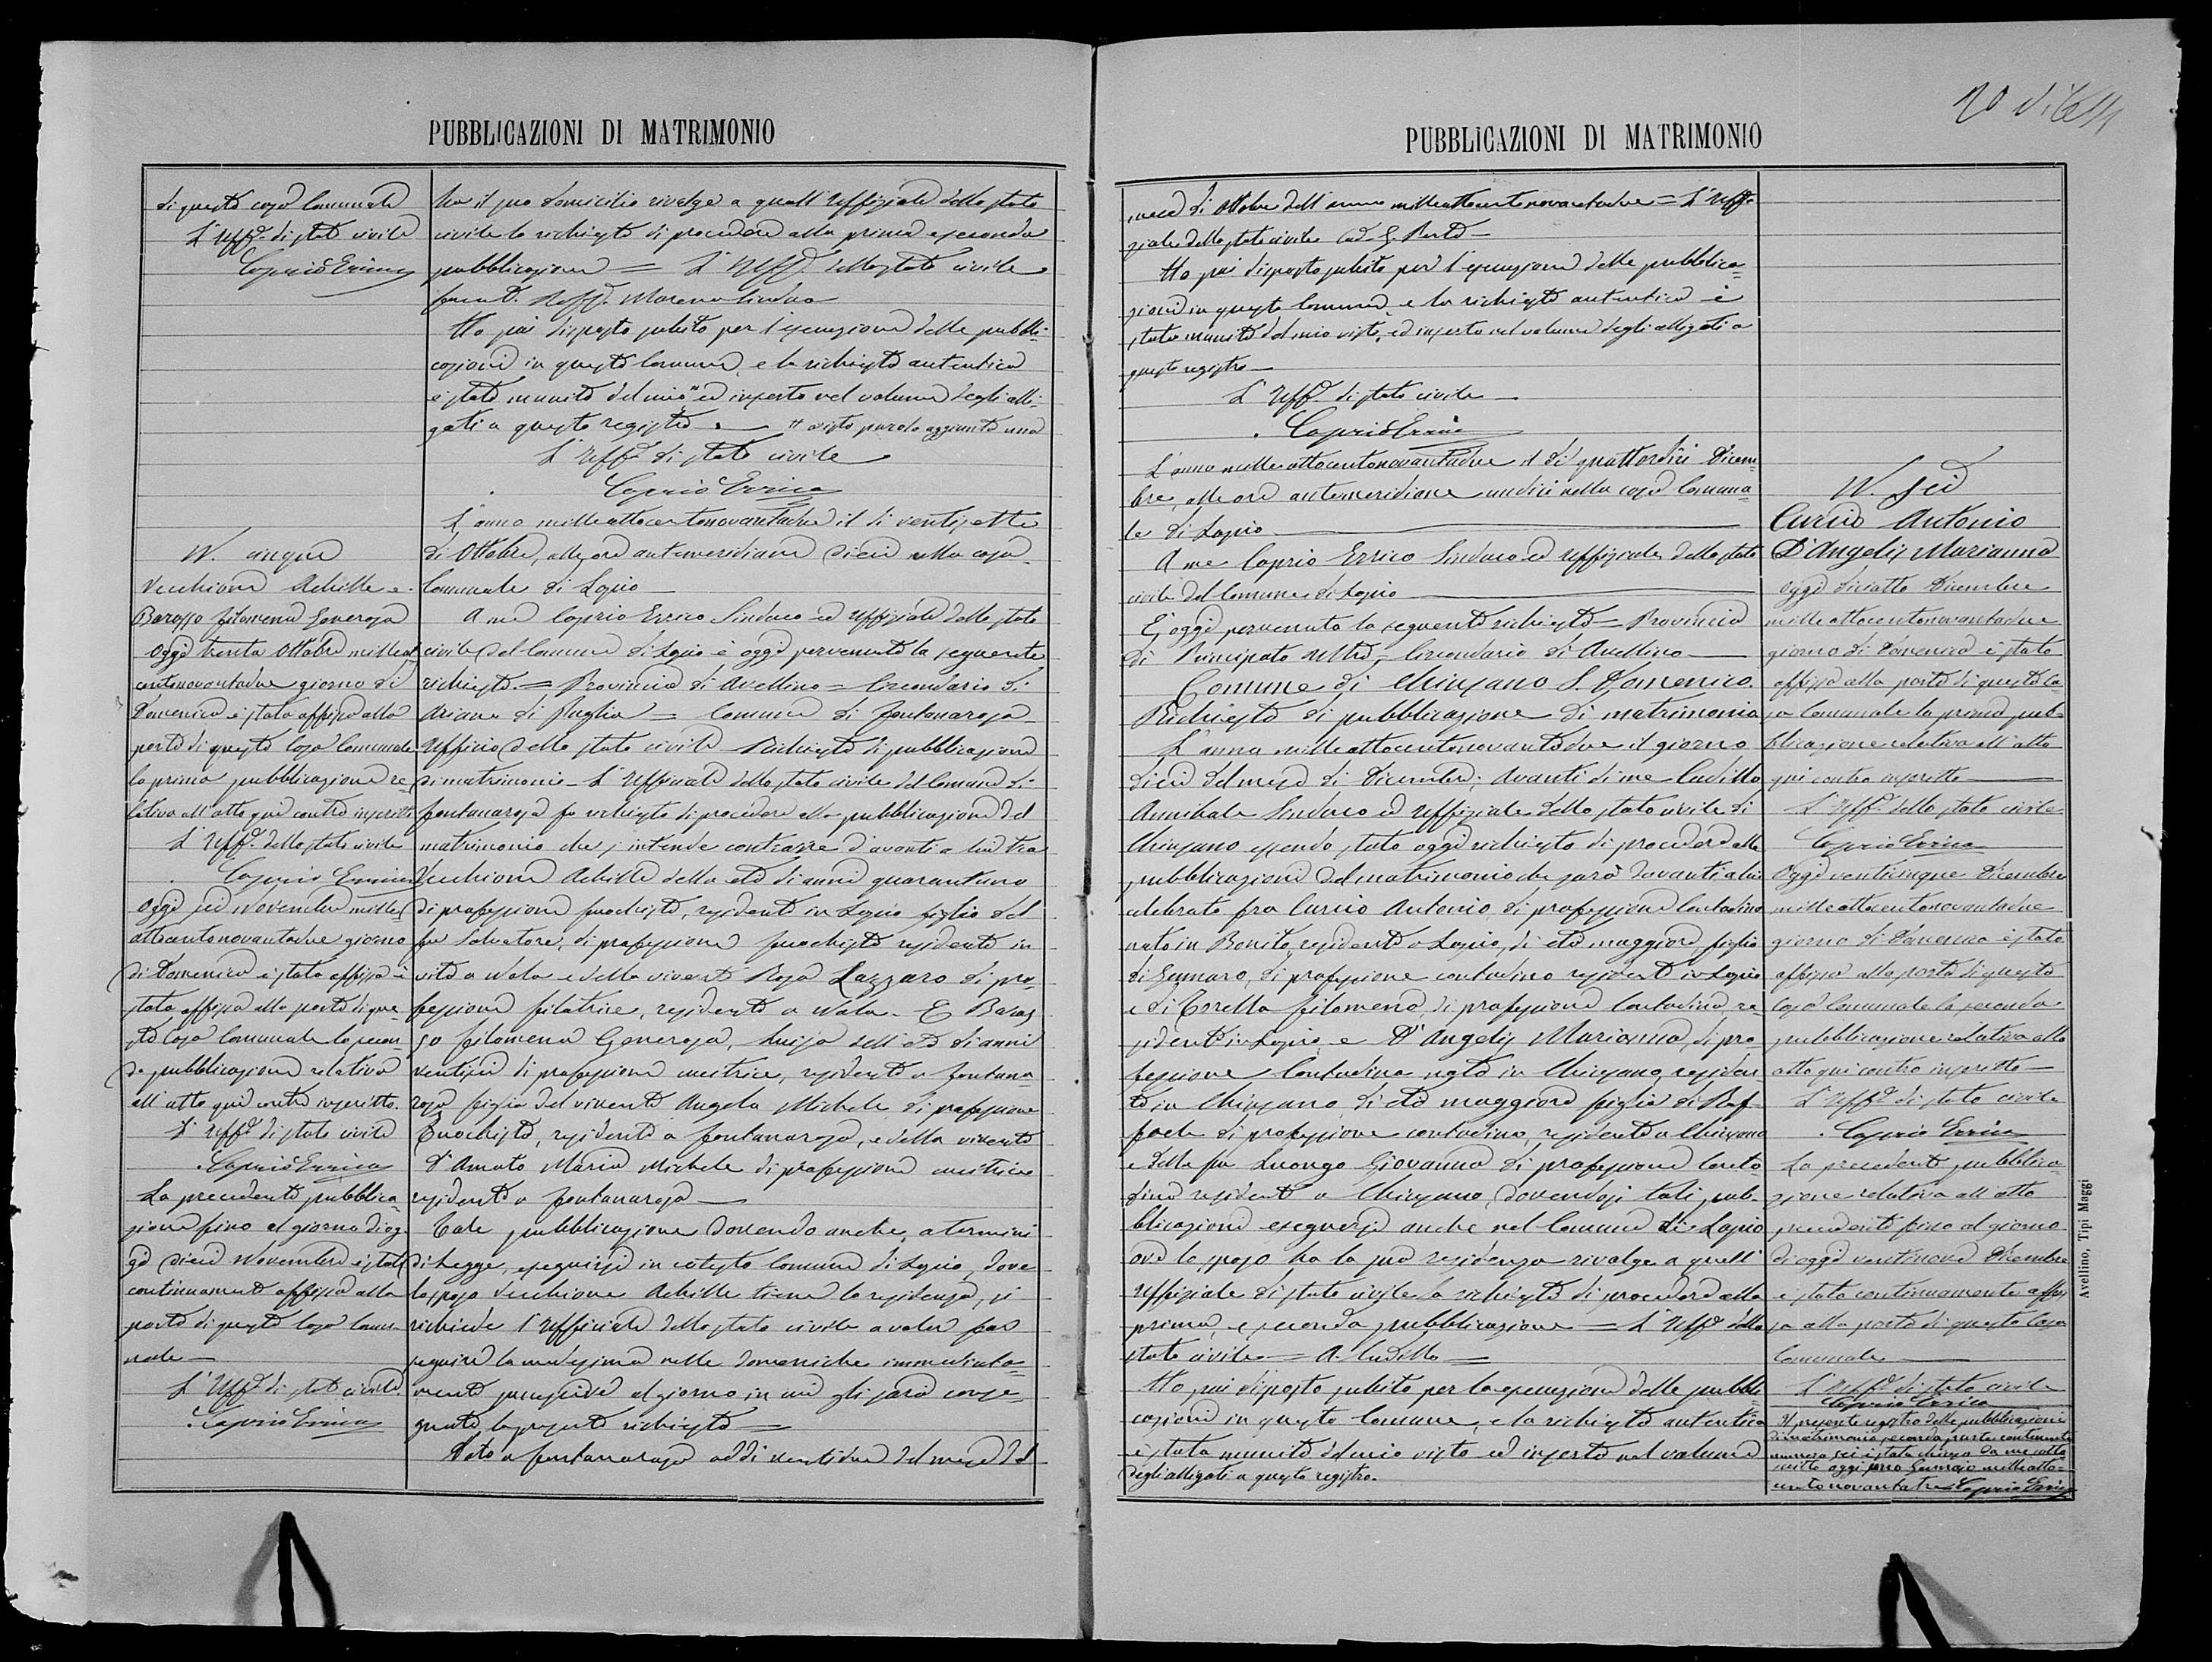 PUBBLICAZIONI DI MATRIMONIO
di questa casa Comunale
L'Uff.e di stato civile
Caprio Errico
N. cinque
Vecchione Achille e
Barasso Filomena Generosa
Oggi trenta Ottobre milleot
centonovantadue giorno di
Domenica è stata affissa alla
porta di questa Casa Comunale
la prima pubblicazione re
lativa all'atto qui contro inscritto
L'Uff.e dello stato civile
Caprio Errico
Oggi sei Novembre mille
ottocentonovantadue giorno
di Domenica è stata affissa è
stata affissa alla porta di que
sta Casa Comunale la secon
da pubblicazione relativa
all'atto qui contro inscritto.
L'Uff.e di stato civile
Caprio Errico
La precedente pubblica
zione fino al giorno di og
gi dieci Novembre è stata
continuamente affissa alla
porta di questa Casa Comu
nale —
L'Uff.e di stato civile
Caprio Errico
ha il suo domicilio rivolge a quell'Uffiziale dello stato
civile la richiesta di procedere alla prima e seconda
pubblicazione = L'Uff.e dello stato civile
Moreno Sindaco
Ho poi disposto subito per l'esecuzione delle pubbli-
cazioni in questo Comune, e la richiesta autentica
è stata munita del mio " ed inserta nel volume degli alli-
gati a questo registro. — " visto parola aggiunta una
L'Uff.e di stato civile
Caprio Errico
L'anno milleottocentonovantadue il dì ventisette
di Ottobre, alle ore antimeridiane dieci nella casa
Comunale di Lapio —
A me Caprio Errico Sindaco ed Uffiziale dello stato
civile del Comune di Lapio è oggi pervenuta la seguente
richiesta = Provincia di Avellino = Circondario di
Ariano di Puglia = Comune di Fontanarosa
Ufficio dello stato civile Richiesta di pubblicazione
di matrimonio - L'Ufficiale dello stato civile del Comune di
Fontanarosa fu richiesto di procedere alla pubblicazione del
matrimonio che s'intende contrarre d'avanti a lui tra
Vecchione Achille della età di anni quarantuno
di professione fuochista, residente in Lapio figlio del
fu Salvatore, di professione fuochista residente in
vita a Nola e della vivente Rosa Lazzaro di pro-
fessione filatrice, residente a Nola. E Baras
so Filomena Generosa, Luisa dell'età di anni
ventisei di professione mestrice, residente a Fontana
rosa figlia del vivente Angelo Michele di professione
Fuochista, residente a Fontanarosa, e della vivente
D'Amato Maria Michele di professione mestrice
residente a Fontanarosa —
Tale pubblicazione dovendo anche, a termini
di legge, eseguirsi in cotesto Comune di Lapio, dove
lo sposo Vecchione Achille tiene la residenza, si
richiede l'Ufficiale dello stato civile a voler far
seguire la medesima nelle domeniche immediata-
mente successive al giorno in cui gli sarà conse-
gnata la presente richiesta =
Dato a Fontanarosa addì ventidue del mese del
PUBBLICAZIONI DI MATRIMONIO
mese di Ottobre dell'anno milleottocentonovantadue = L'Uffi
ziale dello stato civile
Ho poi disposto subito per l'esecuzione delle pubblica-
zioni in questo Comune, e la richiesta autentica è
stata munita del mio visto, ed inserta nel volume degli alligati a
questo registro —
L'Uff.e di stato civile —
Caprio Errico
L'anno milleottocentonovantadue il dì quattordici Dicem-
bre, alle ore antimeridiane undici nella casa Comuna-
le di Lapio
A me Caprio Errico Sindaco ed Uffiziale dello stato
civile del Comune di Lapio
È oggi pervenuta la seguente richiesta = Provincia
di Principato Ultra, Circondario di Avellino —
Comune di Chiusano S. Domenico.
Richiesta di pubblicazione di matrimonio
L'anno milleottocentonovantadue il giorno
dieci del mese di Dicembre; avanti di me Cudillo
Annibale Sindaco ed Uffiziale dello stato civile di
Chiusano essendo stato oggi richiesto di procedere alle
pubblicazioni del matrimonio che sarà davanti a lui
celebrato fra Curcio Antonio, di professione Contadino
nato in Bonito, residente a Lapio, di età maggiore figlio
di Gennaro, di professione contadino residente in Lapio
e di Torella Filomena, di professione Contadina re
sidente in Lapio, e D'Angelis Marianna, di pro
fessione Contadina nata in Chiusano residen
te in Chiusano, di età maggiore figlia di Raf
faele di professione contadino, residente a Chiusano
e della fu Luongo Giovanna di professione Conta
dina residente a Chiusano, dovendosi tali pub-
blicazioni eseguirsi anche nel Comune di Lapio
ove lo sposo ha la sua residenza rivolge a quell'
Uffiziale di stato civile la richiesta di procedere alla
prima, e seconda pubblicazione = L'Uff.e dello
stato civile = A. Cudillo =
Ho poi disposto subito per la esecuzione delle pubbli
cazioni in questo Comune, e la richiesta autentica
è stata munita del mio visto ed inserta nel volume
degli alligati a questo registro.
N. sei
Curcio Antonio
D'Angelis Marianna
Oggi diciotto Dicembre
milleottocentonovantadue
giorno di Domenica è stata
affissa alla porta di questa Ca
sa Comunale la prima pub
blicazione relativa all'atto
qui contro inscritto —
L'Uff.e dello stato civile
Caprio Errico
Oggi venticinque Dicembre
milleottocentonovantadue
giorno di Domenica è stata
affissa alla porta di questa
Casa Comunale la seconda
pubblicazione relativa allo
atto qui contro inscritto —
L'Uff.e di stato civile
Caprio Errico
La precedente pubblica
zione relativa all'atto
precedente fino al giorno
di oggi ventinove Dicembre
è stata continuamente affis
sa alla porta di questa Casa
Comunale —
L'Uff.e di stato civile
Caprio Errico
Il presente registro delle pubblicazioni
di matrimonio seconda parte contenente
numero sei è stato chiuso da me sotto
scritto oggi primo Gennaio milleotto-
centonovantatre Caprio Errico
Avellino, Tipi Maggi